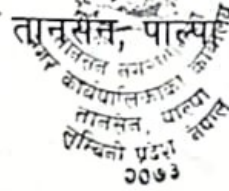 तानसेन, पाल्पा
तानसेन नगर
नगर कार्यपालिकाको कार्यालय
तानसेन, पाल्पा
लुम्बिनी प्रदेश नेपाल
२०७३